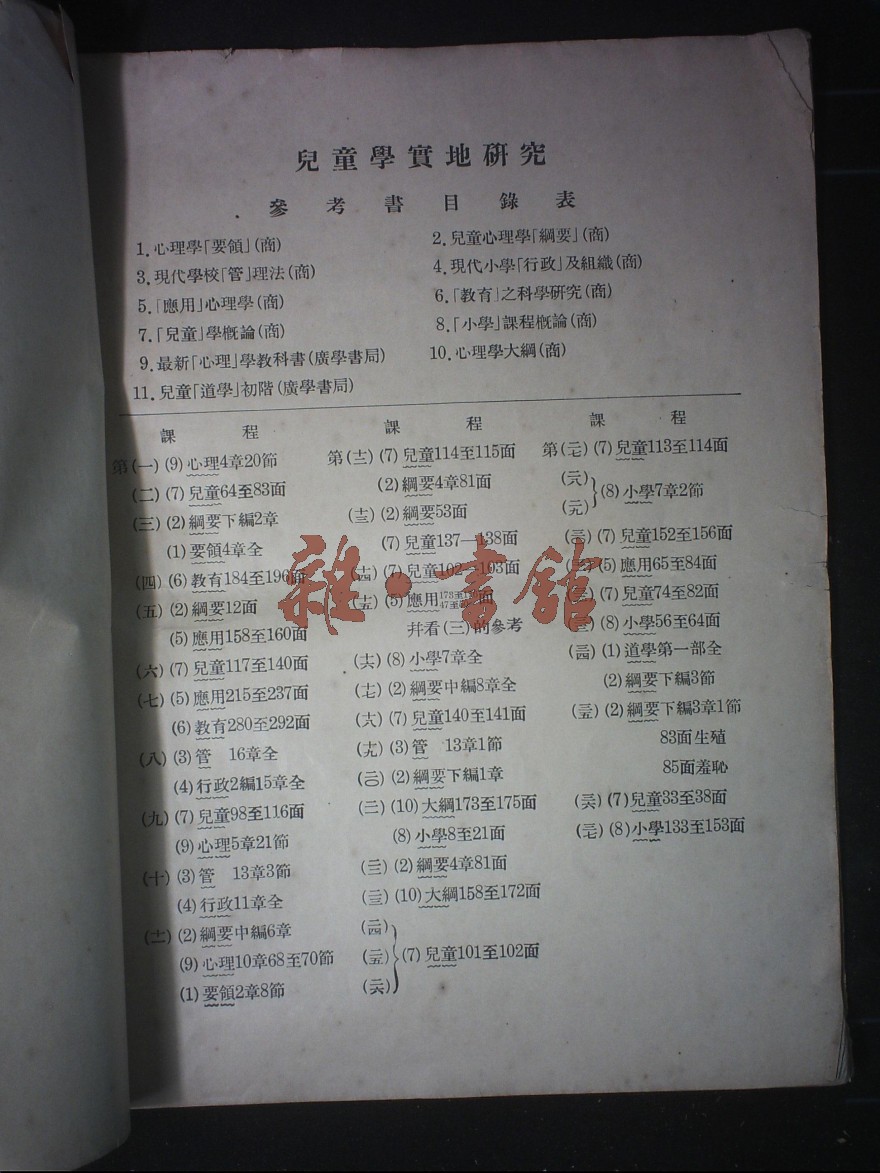 兒童學實地研究
參考書目錄表
1.心理學「要領」(商)
2.兒童心理學「綱要」(商)
3.現代學校「管」理法(商)
4.現代小學「行政」及組織(商)
5.「應用」心理學(商)
6.「教育」之科學研究(商)
7.「兒童」學概論(商)
8.「小學」課程概論(商)
9.最新「心理」學教科書(廣學書局)
10.心理學大綱(商)
11.兒童「道學」初階(廣學書局)
課程
第(一)(9)心理4章20節
(二)(7)兒童64至83面
(三)(2)綱要下編2章
(1)要領4章全
(四)(6)教育184至196面
(五)(2)綱要12面
(5)應用158至160面
(六)(7)兒童117至140面
(七)(5)應用215至237面
(6)教育280至292面
(八)(3)管 16章全
(4)行政2編15章全
(九)(7)兒童98至116面
(9)心理5章21節
(十)(3)管 13章3節
(4)行政11章全
(十一)(2)綱要中編6章
(9)心理10章68至70節
(1)要領2章8節
課程
第(十二)(7)兒童114至115面
(2)綱要4章81面
(十三)(2)綱要53面
(7)兒童137—138面
(十四)(7)兒童102—103面
(十五)(5)應用
幷看(三)的參考
(十六)(8)小學7章全
(十七)(2)綱要中編8章全
(十八)(7)兒童140至141面
(十九)(3)管 13章1節
(二〇)(2)綱要下編1章
(二一)(10)大綱173至175面
(8)小學8至21面
(二二)(2)綱要4章81面
(二三)(10)大綱158至172面
(二四)
(二五)(7)兒童101至102面
(二六)
課程
第(二七)(7)兒童113至114面
(二八)
(8)小學7章2節
(二九)
(三〇)(7)兒童152至156面
(5)應用65至84面
(7)兒童74至82面
(三三)(8)小學56至64面
(三四)(1)道學第一部全
(2)綱要下編3節
(三五)(2)綱要下編3章1節
83面生殖
85面羞恥
(三六)(7)兒童33至38面
(三七)(8)小學133至153面
雜·書館